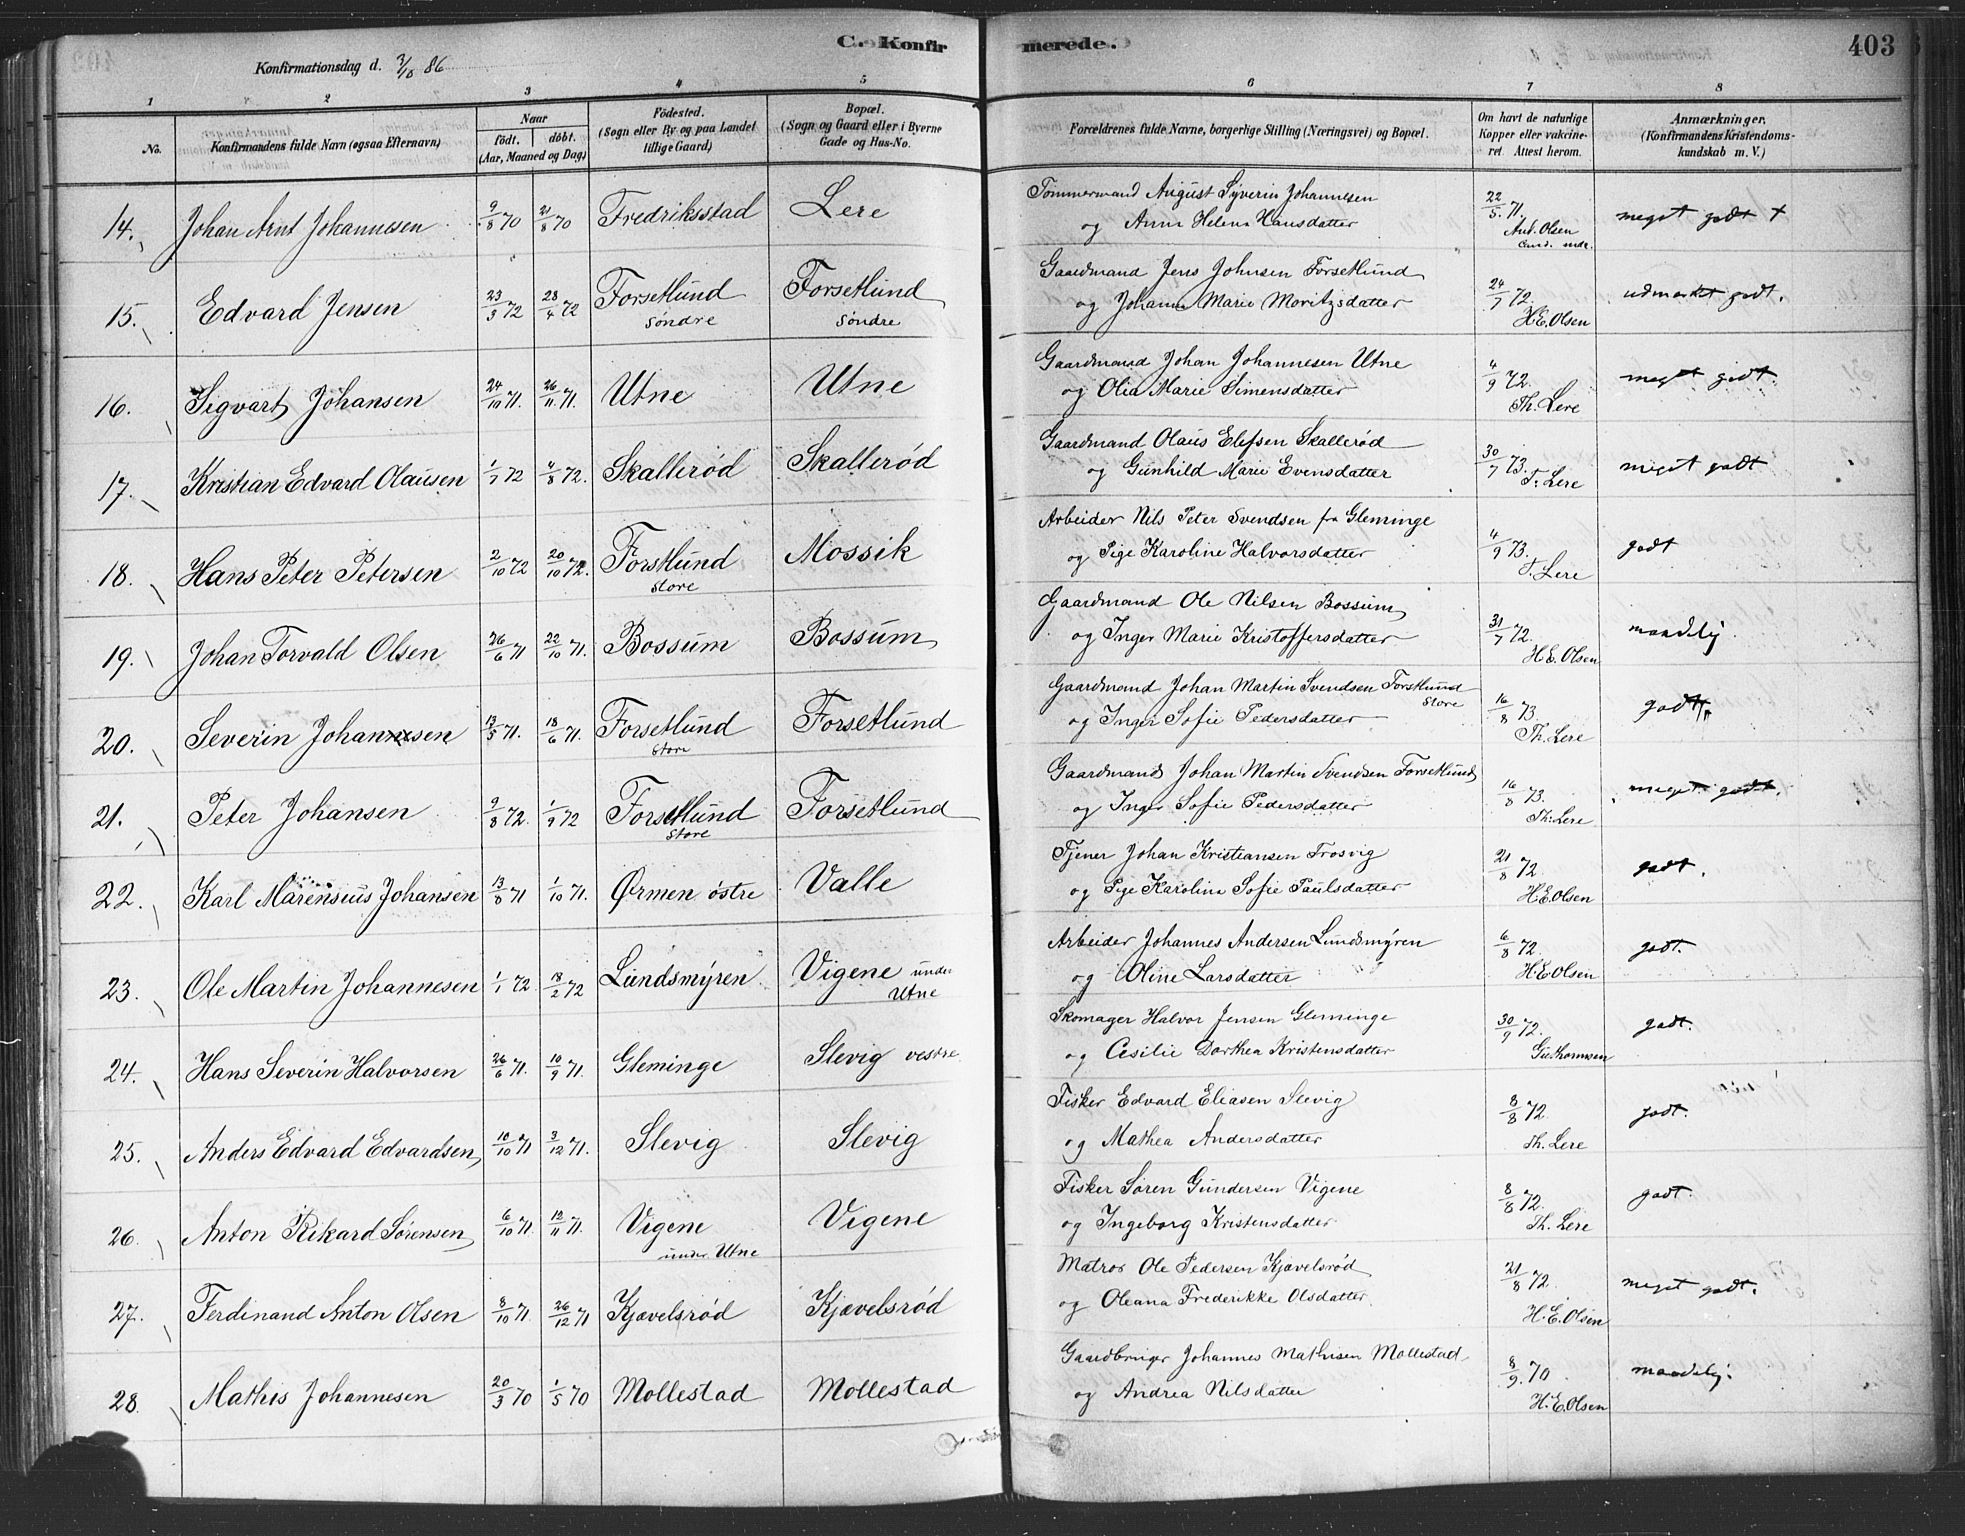 C. Konfir merede. 403
Konfirmationsdag d. 3/10 86
1 2 3 4 5 6 7 8
No. Konfirmandens fulde Navn (ogsaa Efternavn)
Naar
født, døbt.
(Aar, Maaned og Dag)
Fødested.
(Sogn eller By og paa Landet
tillige Gaard)
Bopæl.
(Sogn og Gaard eller i Byerne
Gade og Hus-No.
Forældrenes fulde Navne, borgerlige Stilling (Næringsvei) og Bopæl.
Om havt de naturlige
Kopper eller vakcine-
ret Attest herom.
Anmærkninger.
(Konfirmandens Kristendoms-
kundskab m. V.)
14. Johan Arnt Johannesen 9/8 70 21/8 70 Fredriksstad Lere Tømmermand August Syverin Johannesen 22/5 71. meget godt +
og Anna Helena Hansdatter And. Olsen
15. Edvard Jensen 23/3 72 28/4 72 Forsetlund Forsetlund Gaardmand Jens Johnsen Forsetlund 24/7 72. udmerket godt.
Søndre Søndre og Johanne Marie Moritzsdatter H.E. Olsen
16. Sigvart Johansen 24/10 71. 26/11 71. Utne Utne Gaardmand Johan Johannesen Utne 4/9 72. meget godt.
og Olia Marie Simensdatter Th. Lere
17. Kristian Edvard Olausen 1/7 72 4/8 72. Skallerød Skallerød Gaardmand Olaus Elefsen Skallerød 30/7 73. meget godt
og Gunhild Marie Evensdatter T. Lere
18. Hans Peter Petersen 2/10 72 20/10 72. Forsetlund Mossik Arbeider Nils Peter Svendsen fra Gleminge 4/9 73. godt
Store og Pige Karoline Halvorsdatter T. Lere
19. Johan Torvald Olsen 26/6 71 22/10 71. Bossum Bossum Gaardmand Ole Nilsen Bossum 31/7 72. maadelig.
og Inger Marie Kristoffersdatter H.E. Olsen
20. Severin Johansen 13/5 71. 18/6 71. Forsetlund Forsetlund Gaardmand Johan Martin Svendsen Forsetlund 16/8 73. godt.
Store Store og Inger Sofie Pedersdatter Th. Lere
21. Peter Johansen 9/8 72. 1/9 72 Forsetlund Forsetlund Gaardmand Johan Martin Svendsen Forsetlund 16/8 73. meget godt.
Store og Inger Sofie Pedersdatter Th. Lere
22. Karl Marensius Johansen 13/8 71 1/10 71. Ørmen østre Valle Tjener Johan Kristiansen Trosvig 21/8 72. godt.
og Pige Karolina Sofie Paulsdatter H.E. Olsen
23. Ole Martin Johannesen 1/1 72 18/2 72 Lundsmyren Vigene under Arbeider Johannes Andersen Lundsmyren 6/8 72. godt.
Utne og Oline Larsdatter H.E. Olsen
24. Hans Severin Halvorsen 26/6 71. 10/9 71. Gleminge Slevig vestre Skomager Halvor Jensen Gleminge 30/9 72. godt.
og Cesilie Dorthea Kristensdatter Guthormsen
25. Anders Edvard Edvardsen 10/10 71 3/12 71. Slevig Slevig Fisker Edvard Eliasen Slevig 8/8 72. godt.
og Mathea Andersdatter Th. Lere
26. Anton Rikard Sørensen 6/10 71. 12/11 71. Vigene Vigene Fisker Søren Gundersen Vigene 8/8 72. godt.
under Utne og Ingeborg Kristensdatter Th. Lere
27. Ferdinand Anton Olsen 8/10 71. 26/12 71 Kjævelsrød Kjævelsrød Matros Ole Pedersen Kjævelsrød 21/8 72. meget godt.
og Oleana Frederikke Olsdatter H.E. Olsen
28. Mathis Johannesen 20/3 70 1/5 70 Mollestad Mollestad Gaardbruger Johannes Mathisen Mollestad 8/9. 70 maadelig.
og Andrea Nilsdatter H.E. Olsen